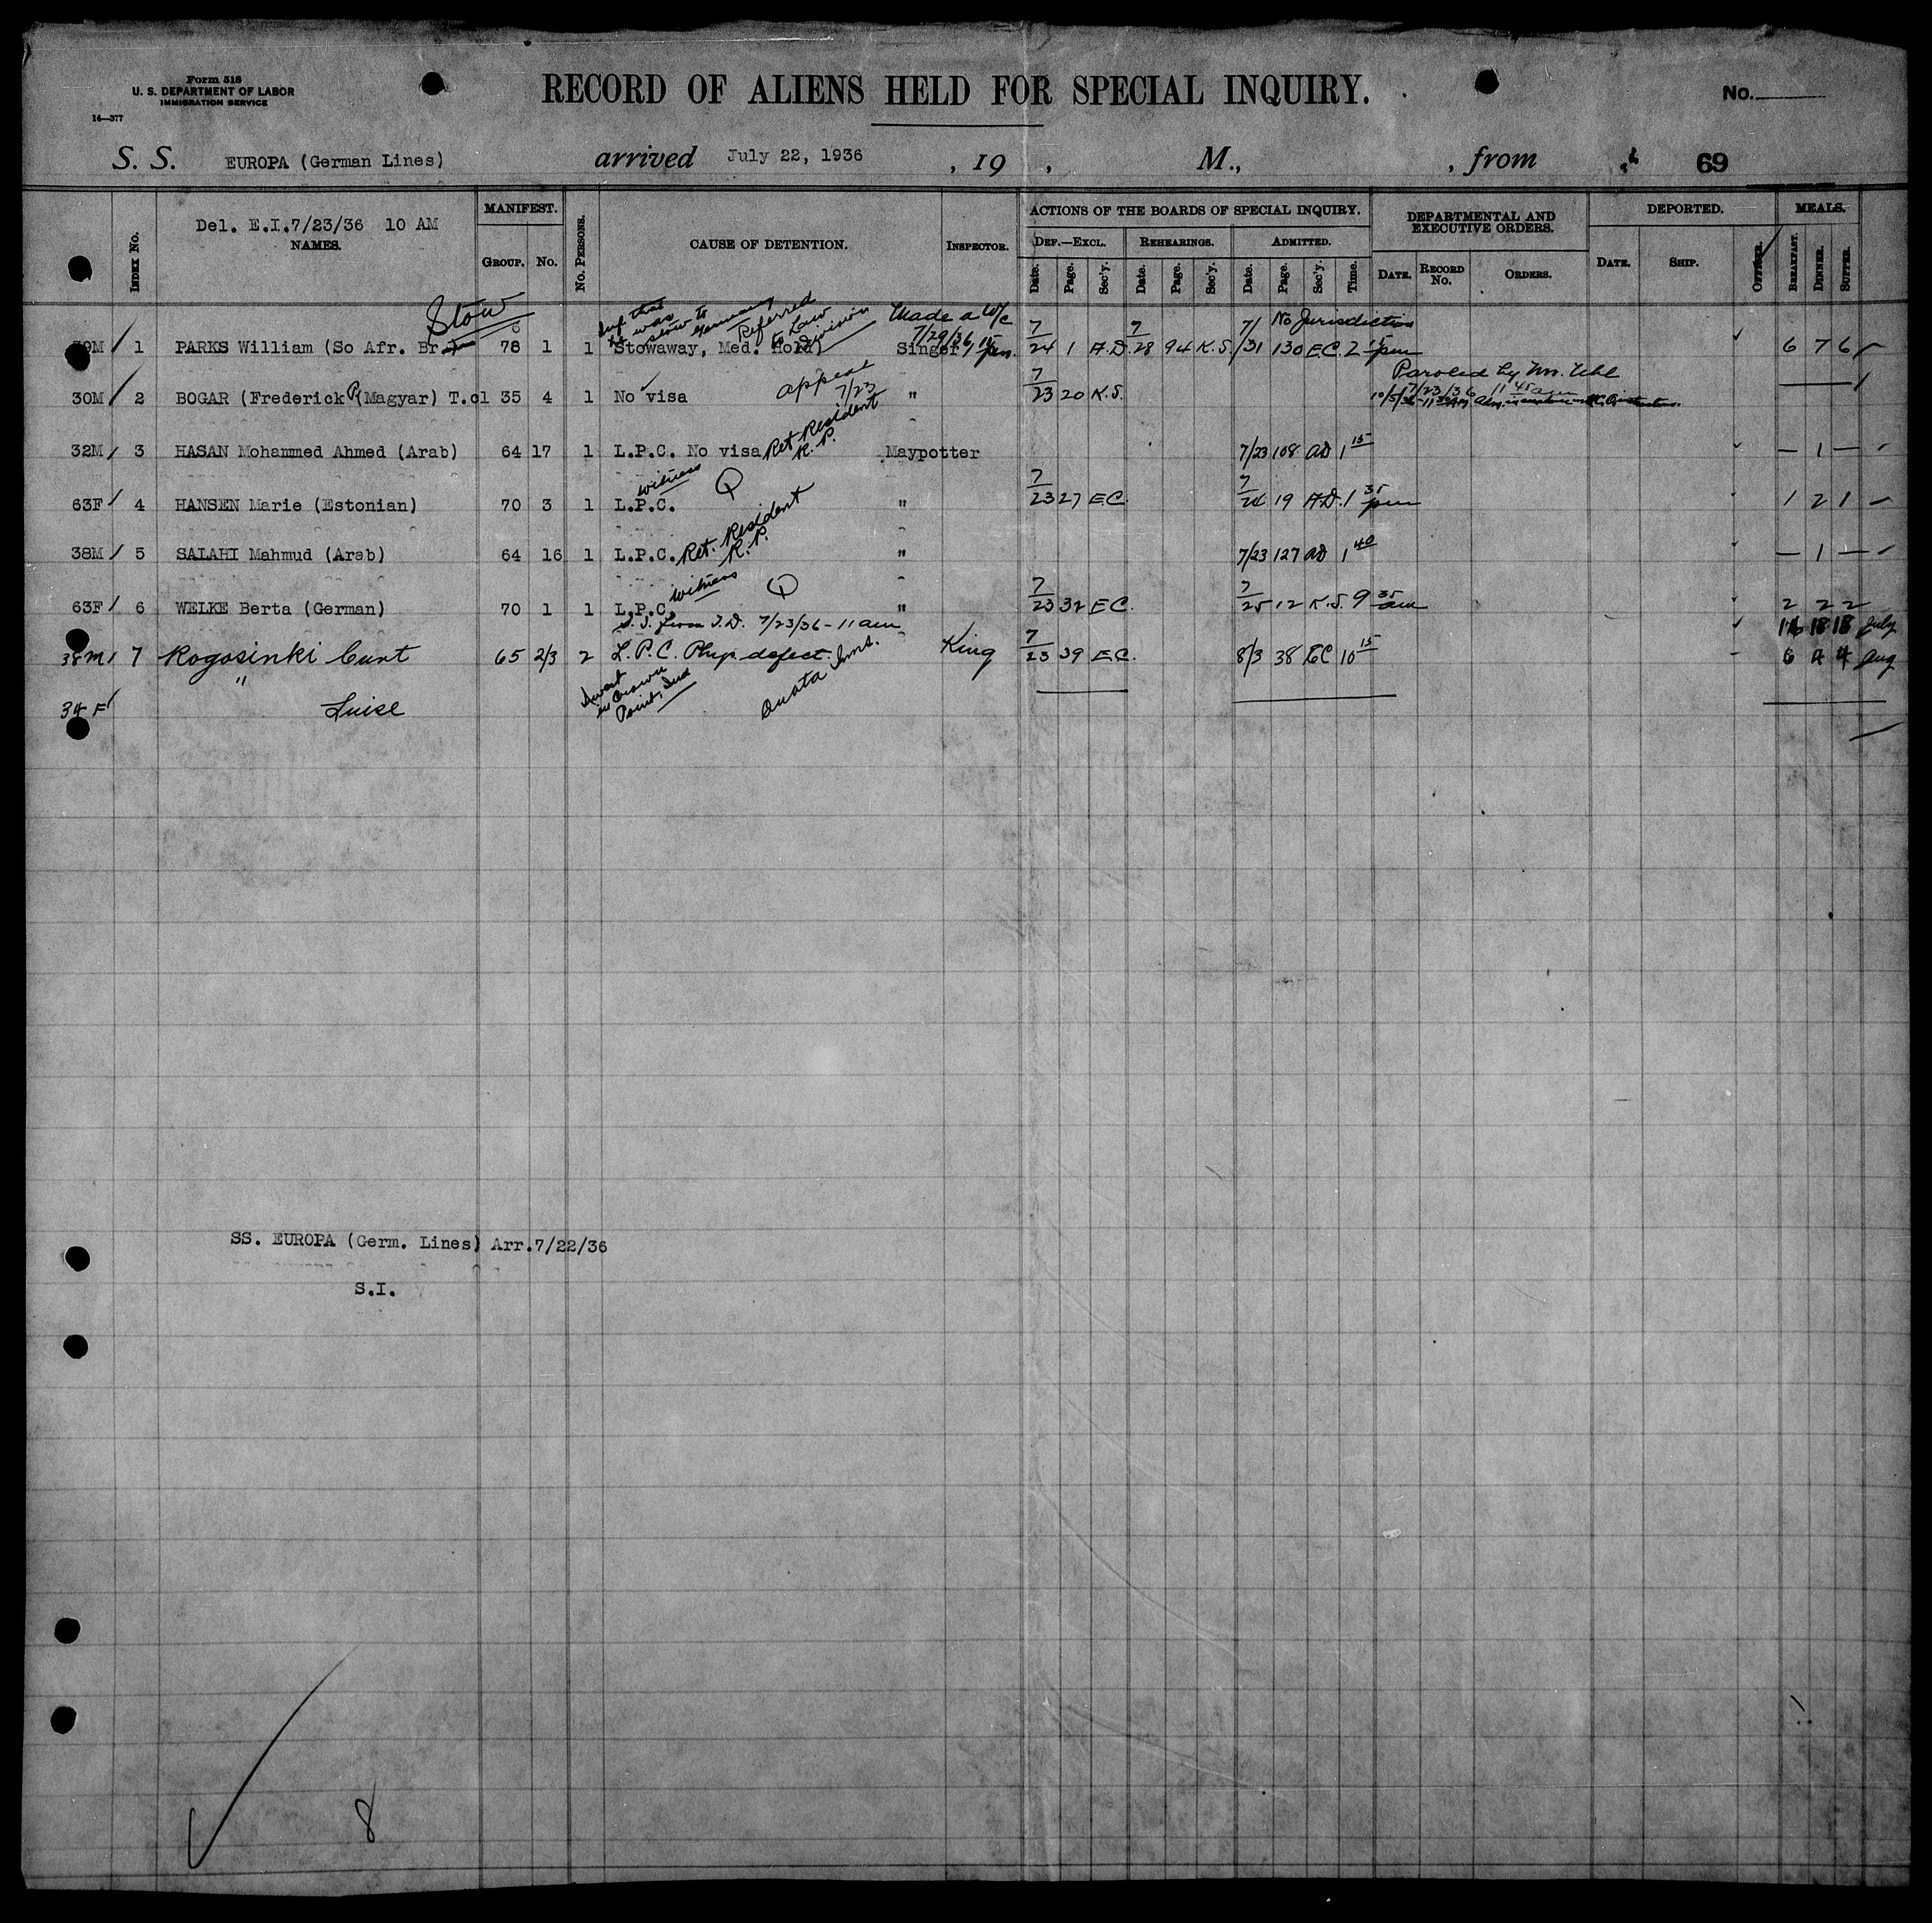 Form 518
U. S. DEPARTMENT OF LABOR
IMMIGRATION SERVICE
14—377
RECORD OF ALIENS HELD FOR SPECIAL INQUIRY.
No.
S. S. EUROPA (German Lines) arrived July 22, 1936 , 19 , M., , from 69
Del. E.I.7/23/36 10 AM
MANIFEST. ACTIONS OF THE BOARDS OF SPECIAL INQUIRY. DEPARTMENTAL AND EXECUTIVE ORDERS. DEPORTED. MEALS.
INDEX No. NAMES. GROUP. No. No. PERSONS. CAUSE OF DETENTION. INSPECTOR. DEF.—EXCL. REHEARINGS. ADMITTED.
Date. Page. Sec'y. Date. Page. Sec'y. Date. Page. Sec'y. Time. DATE. RECORD No. ORDERS. DATE. SHIP. OFFICER. BREAKFAST. DINNER. SUPPER.
Stow Referred to Law Division Made a W/C 7/29/36 No Jurisdiction
1 PARKS William (So Afr. Br.) 78 1 1 Stowaway, Med. Hold) Singer 7/24 1 A.D. 7/28 94 K.S. 7/31 130 E.C. 2 15 pm 6 7 6
appeal 7/23 Paroled by Mr. Uhl
7/23/36 11 45 am
30M 2 BOGAR (Frederick P(Magyar) T.cl 35 4 1 No visa " 7/23 20 K.S.
10/5/36
32M 3 HASAN Mohammed Ahmed (Arab) 64 17 1 L.P.C. No visa Ret Resident R.P. Maypotter 7/23 108 AD 1 15 — 1 —
witness Q
63F 4 HANSEN Marie (Estonian) 70 3 1 L.P.C. " 7/23 27 E.C. 7/24 19 A.D. 1 35 pm 1 2 1
38M 5 SALAHI Mahmud (Arab) 64 16 1 L.P.C. Ret. Resident R.P. " 7/23 127 AD 1 40 — 1 —
witness Q
63F 6 WELKE Berta (German) 70 1 1 L.P.C. " 7/23 32 E.C. 7/25 12 K.S. 9 35 am 2 2 2
S.I. from T.D. 7/23/36 - 11 am 16 18 18 July
38M 7 Rogosinki Curt 65 2/3 2 L.P.C. Phys. defect. King 7/23 39 E.C. 8/3 38 EC 10 15 6 4 4 Aug
34 F " Luise
in Crown Point, Ind Quota Imms.
SS. EUROPA (Germ. Lines) Arr.7/22/36
S.I.
8